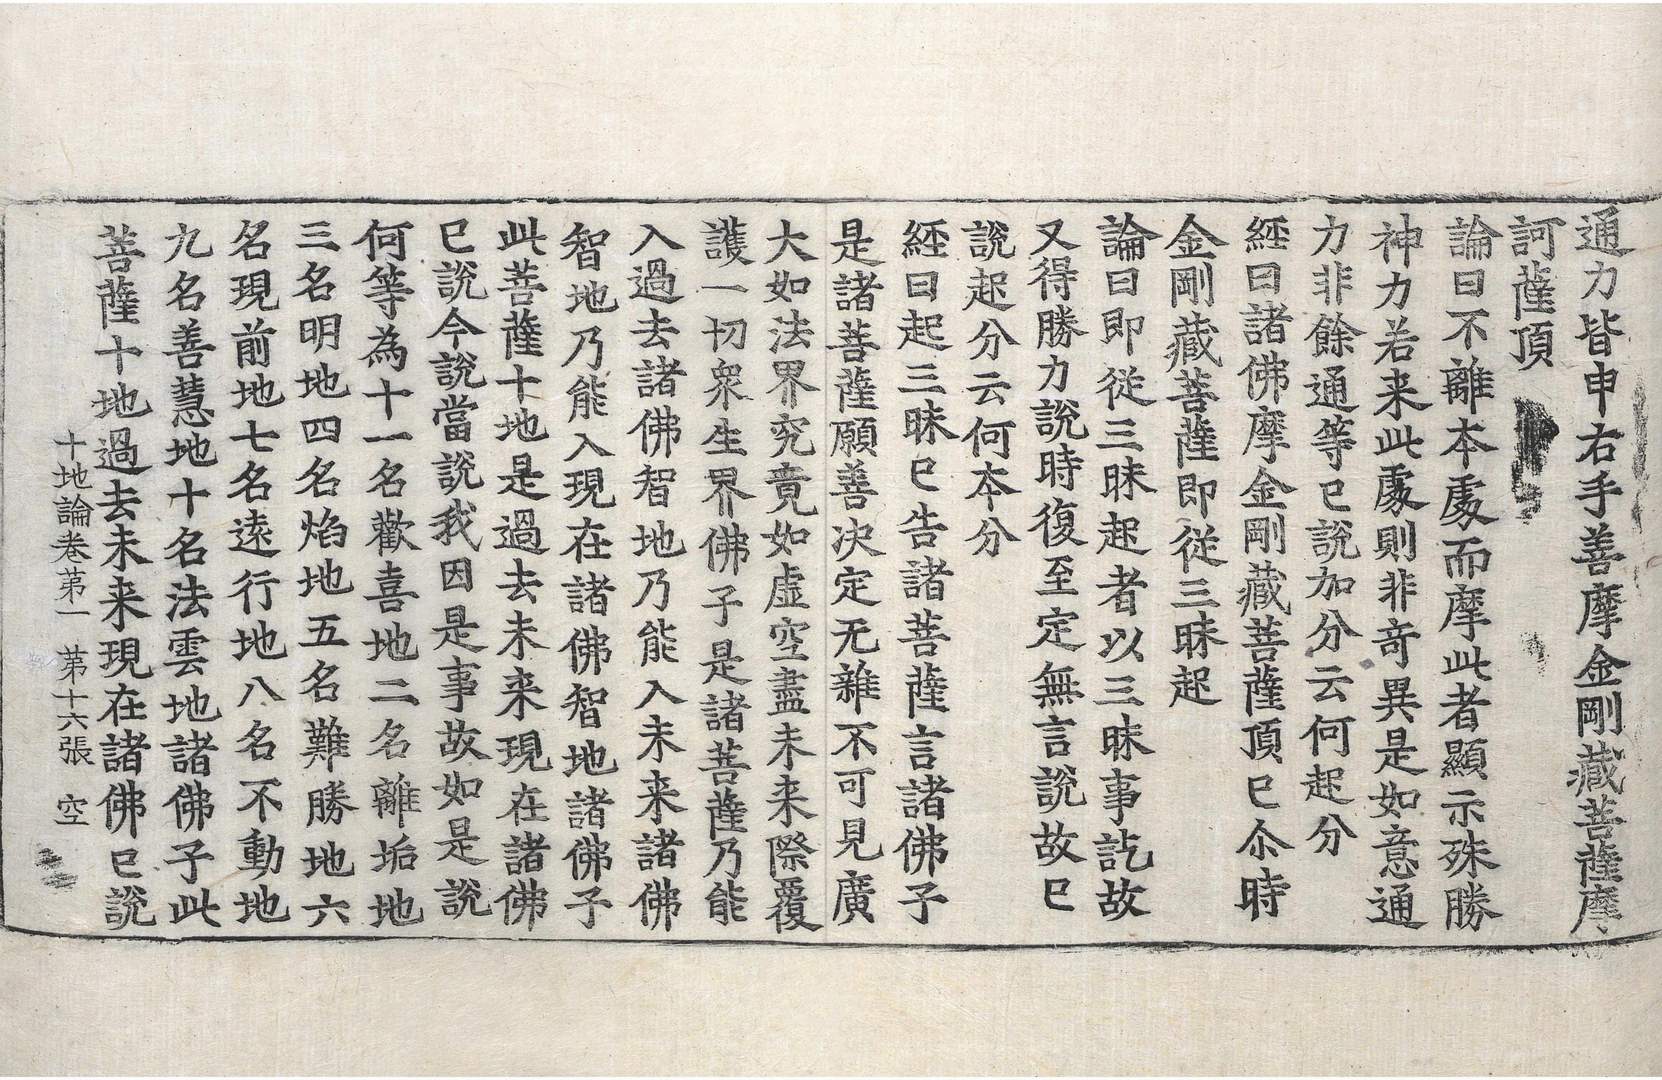 通力皆申右手善摩金剛藏菩薩摩
訶薩頂
論曰不離本處而摩此者顯示殊勝
神力若来此處則非竒異是如意通
力非餘通等已說加分云何起分
經曰諸佛摩金剛藏菩薩頂已尒時
金剛藏菩薩即從三昧起
論曰即從三昧起者以三昧事訖故
又得勝力說時復至定無言說故已
說起分云何本分
經曰起三昧已告諸菩薩言諸佛子
是諸菩薩願善决定无雜不可見廣
大如法界究竟如虛空盡未来際覆
護一切衆生界佛子是諸菩薩乃能
入過去諸佛智地乃能入未来諸佛
智地乃能入現在諸佛智地諸佛子
此菩薩十地是過去未来現在諸佛
已說今說當說我因是事故如是說
何等為十一名歡喜地二名離垢地
三名明地四名焰地五名難勝地六
名現前地七名遠行地八名不動地
九名善慧地十名法雲地諸佛子此
菩薩十地過去未来現在諸佛已說
十地論卷第一 第十六張 空